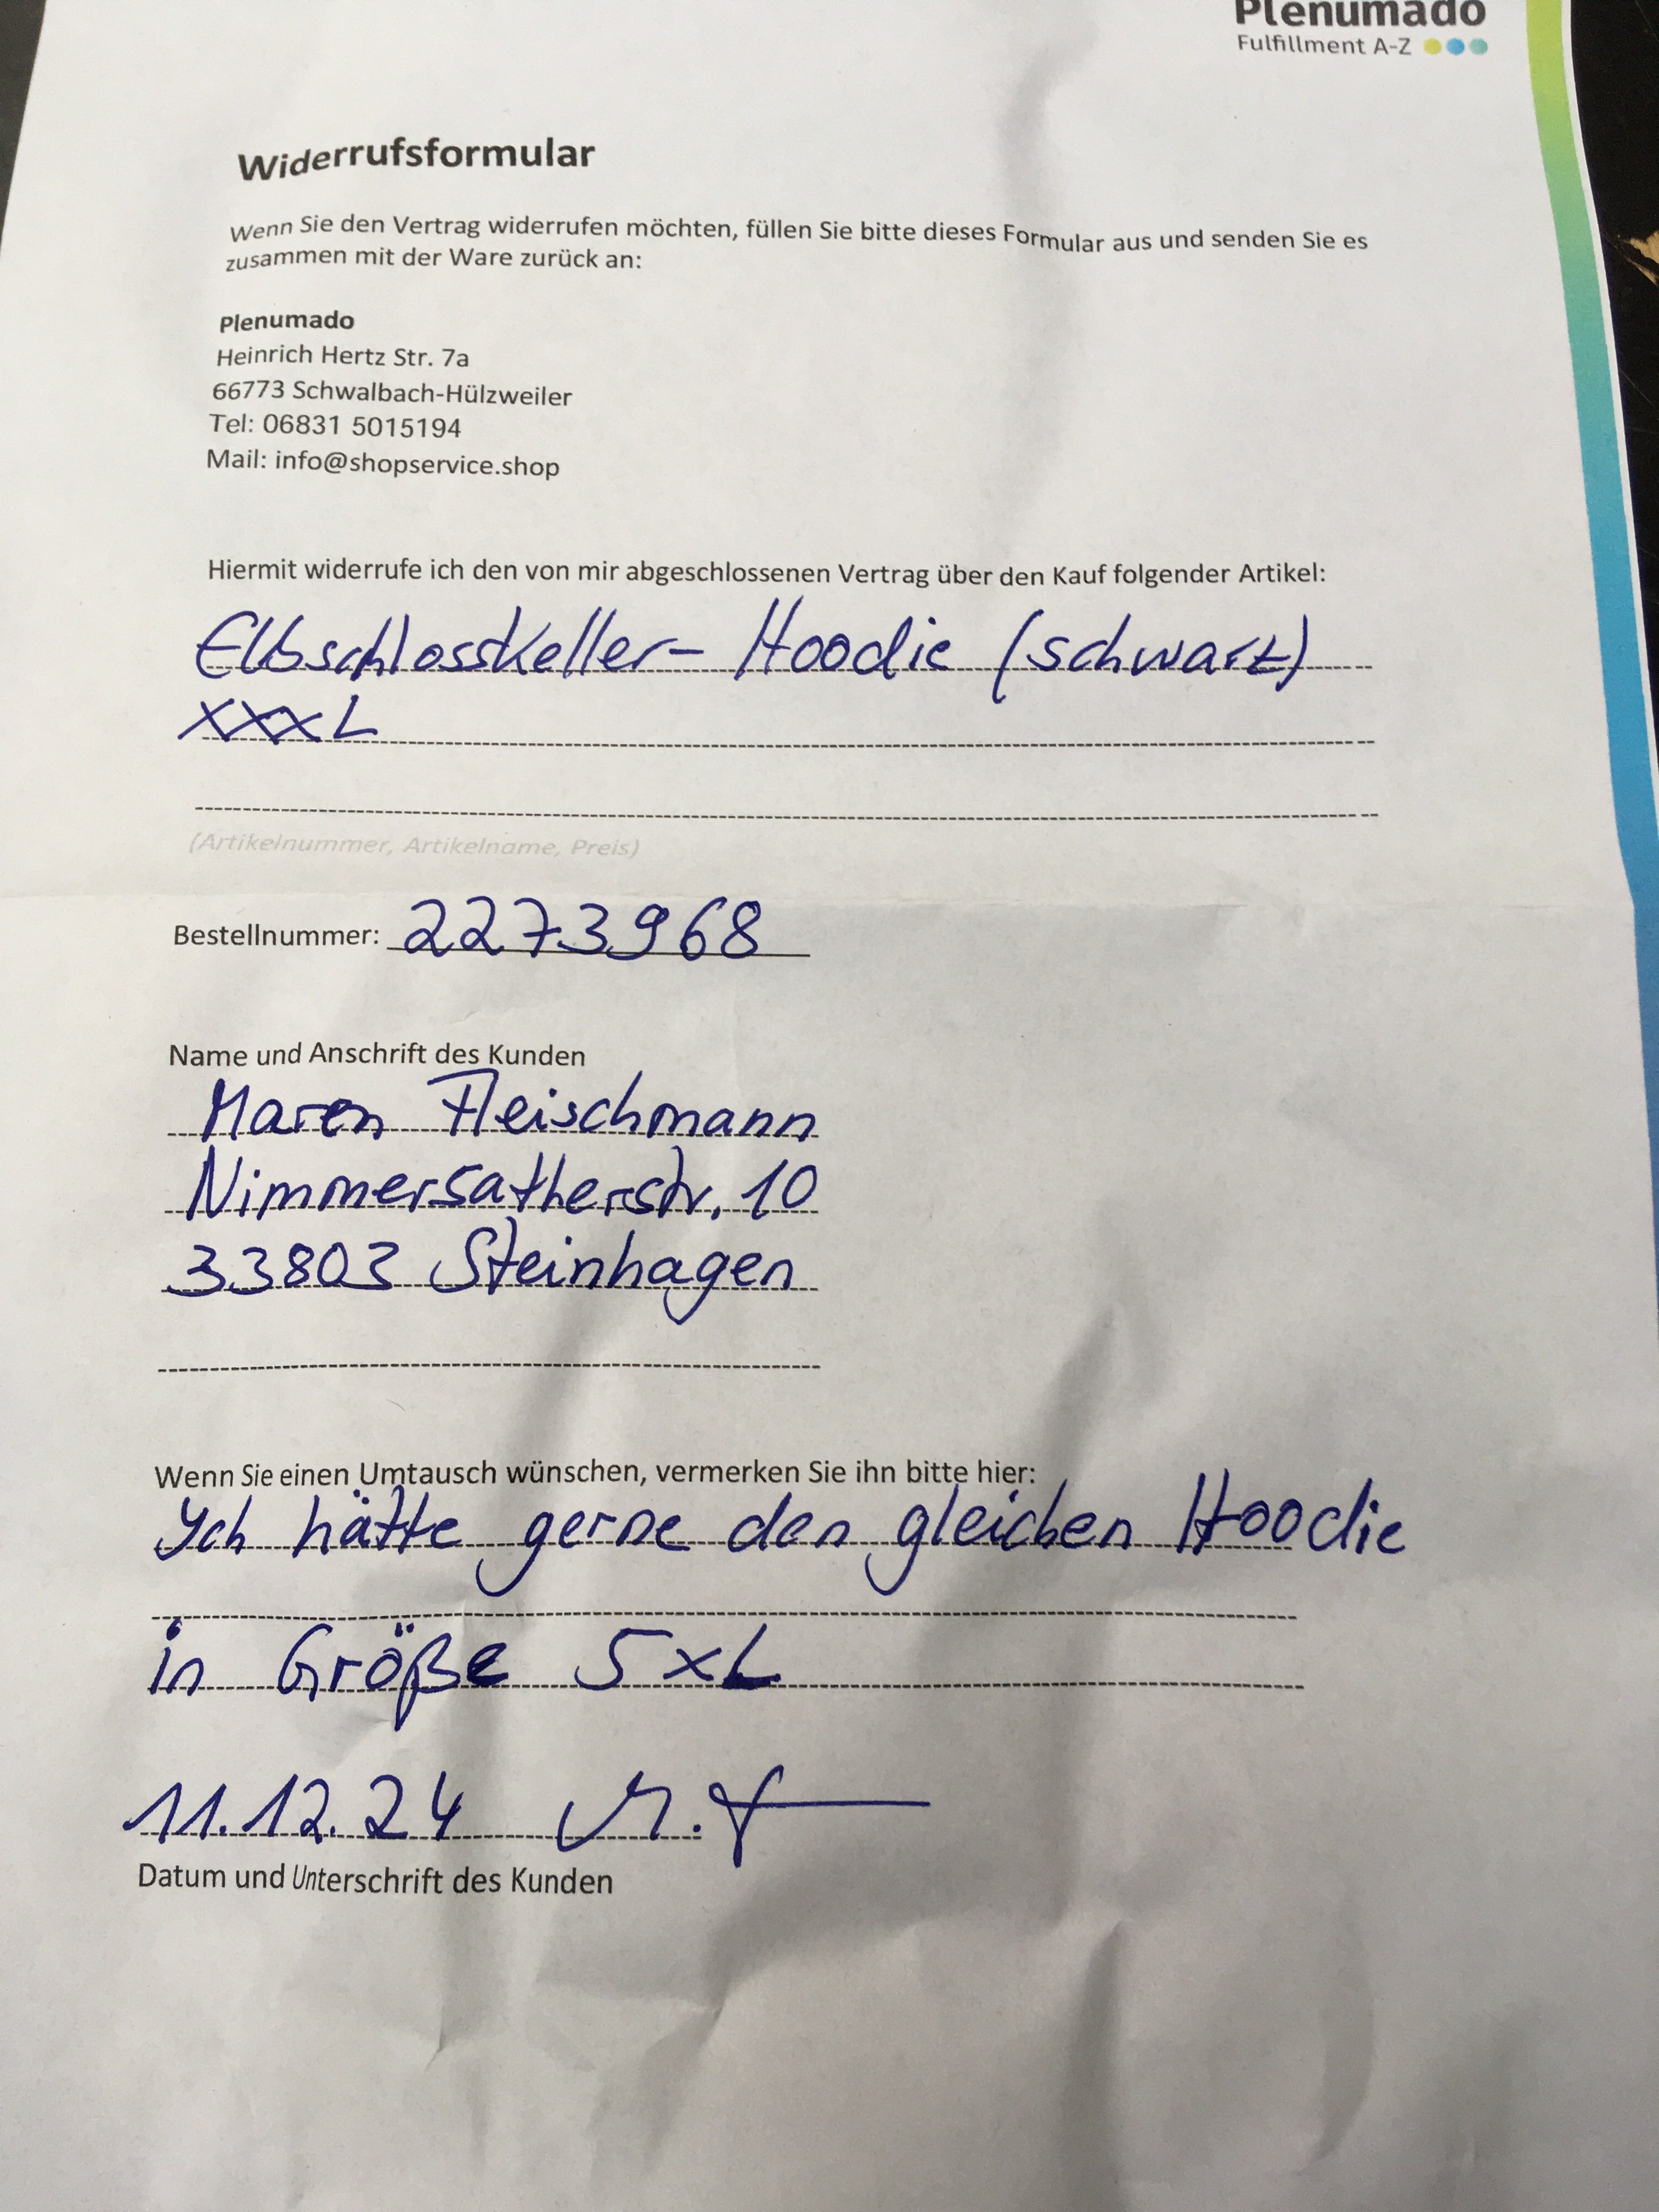 Plenumado
Fulfillment A-Z
Widerrufsformular
Wenn Sie den Vertrag widerrufen möchten, füllen Sie bitte dieses Formular aus und senden Sie es
zusammen mit der Ware zurück an:
Plenumado
Heinrich Hertz Str. 7a
66773 Schwalbach-Hülzweiler
Tel: 06831 5015194
Mail: info@shopservice.shop
Hiermit widerrufe ich den von mir abgeschlossenen Vertrag über den Kauf folgender Artikel:
Elbschlosskeller- Hoodie (schwarz)
XXXL
(Artikelnummer, Artikelname, Preis)
Bestellnummer: 2273968
Name und Anschrift des Kunden
Maren Fleischmann
Nimmersatherstr. 10
33803 Steinhagen
Wenn Sie einen Umtausch wünschen, vermerken Sie ihn bitte hier:
Ich hätte gerne den gleichen Hoodie
in Größe 5XL
11.12.24 M. F
Datum und Unterschrift des Kunden